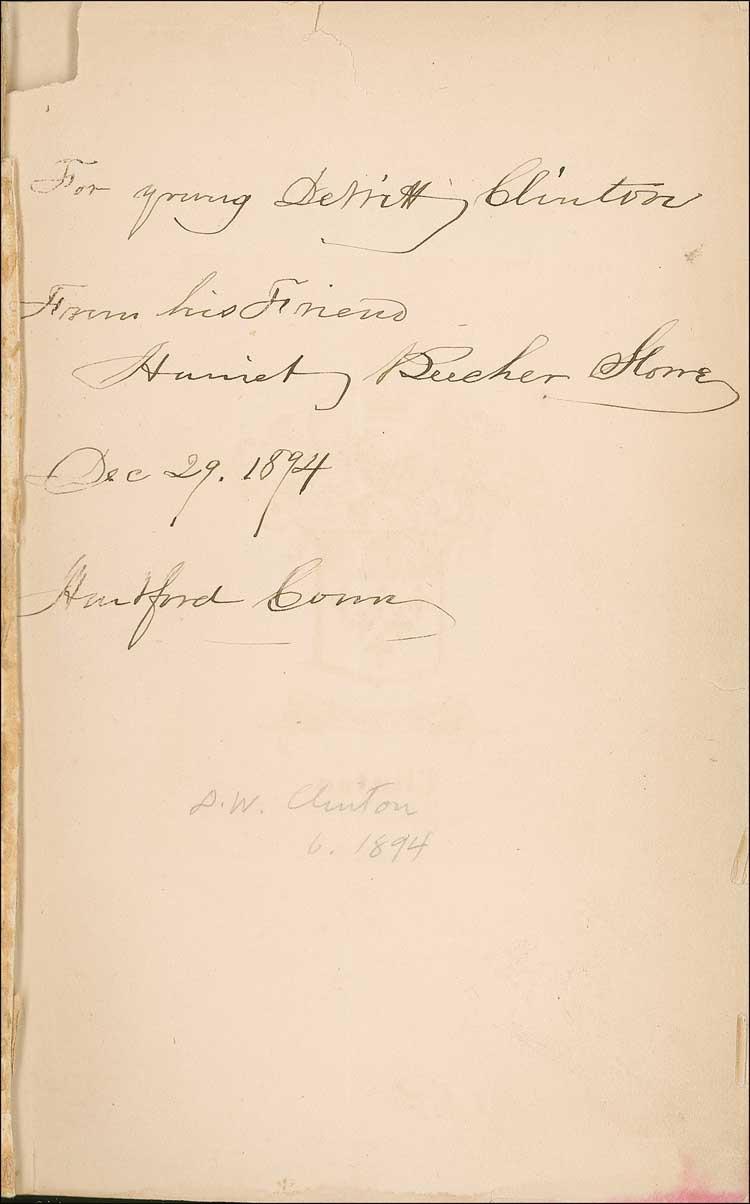 For young DeWitt Clinton
From his Friend
Harriet Beecher Stowe
Dec 29. 1894
Hartford Conn
D.W. Clinton
b. 1894